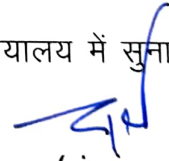 यालय में सुना